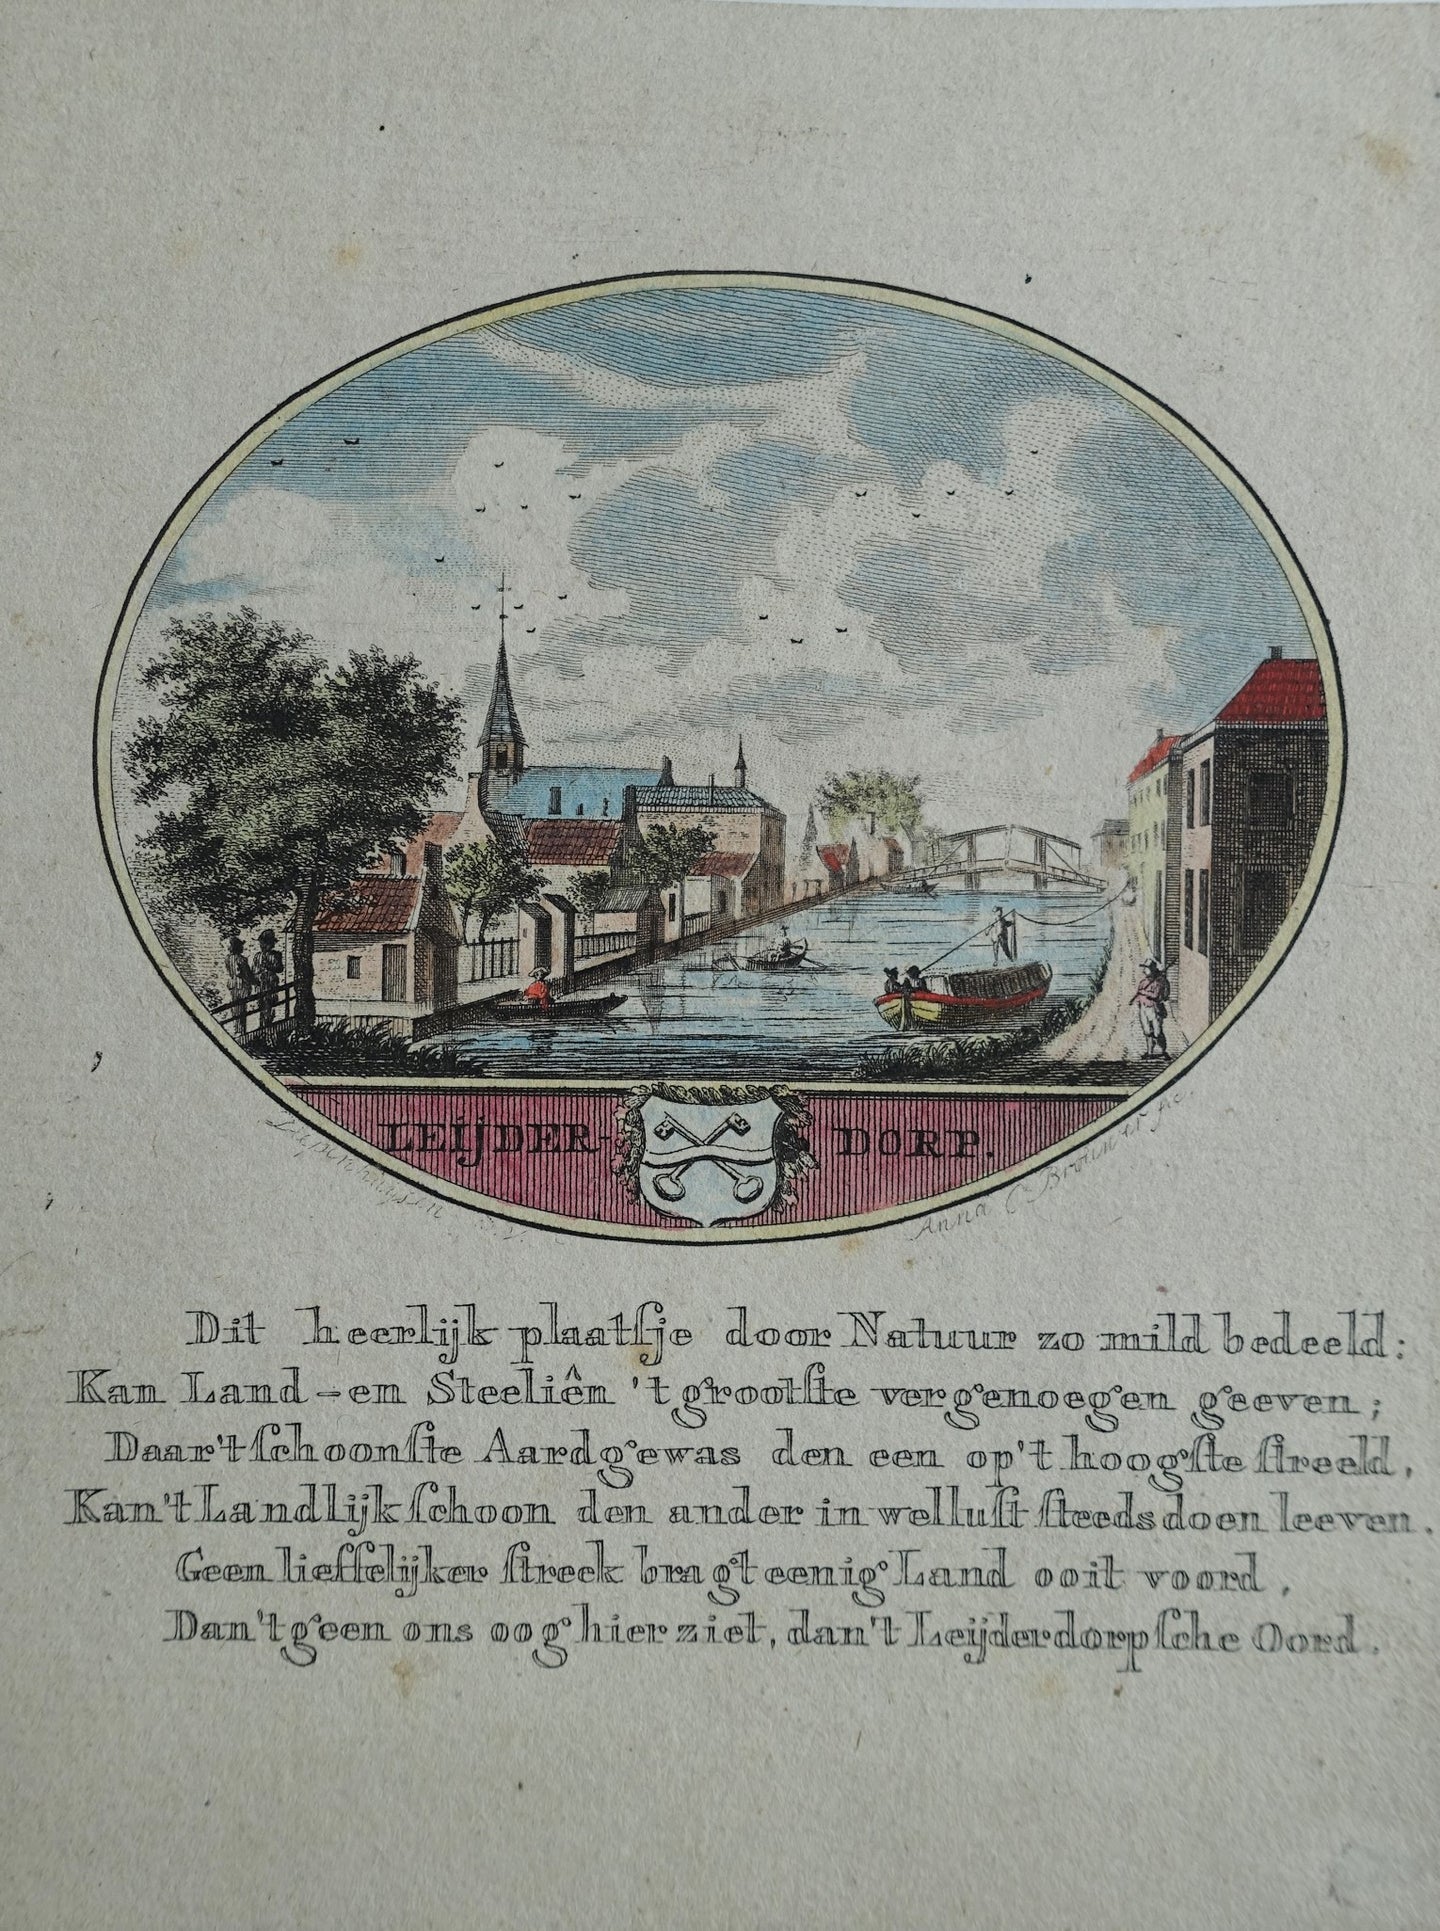 LEIJDER- DORP.
Anna C Brouwer fec.
Dit heerlijk plaatſje door Natuur zo mild bedeeld:
Kan Land-en Steeliên 't grootſte vergenoegen geeven;
Daar't ſchoonſte Aardgewas den een op't hoogſte ſtreeld,
Kan't Landlijk ſchoon den ander in welluſt ſteeds doen leeven.
Geen lieffelijker ſtreek bragt eenig Land ooit voord,
Dan't geen ons oog hier ziet, dan't Leijderdorpſche Oord.